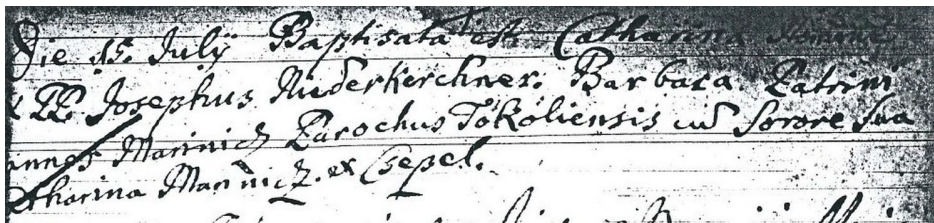 Die 15. Julij Baptisata est Catharina Nomine
PP. Josephus Niederkerchner. Barbara Patrini
annes Marinicz Parochus Tököliensis cum Sorore Sua
Catharina Marinicz. ex Csepel.